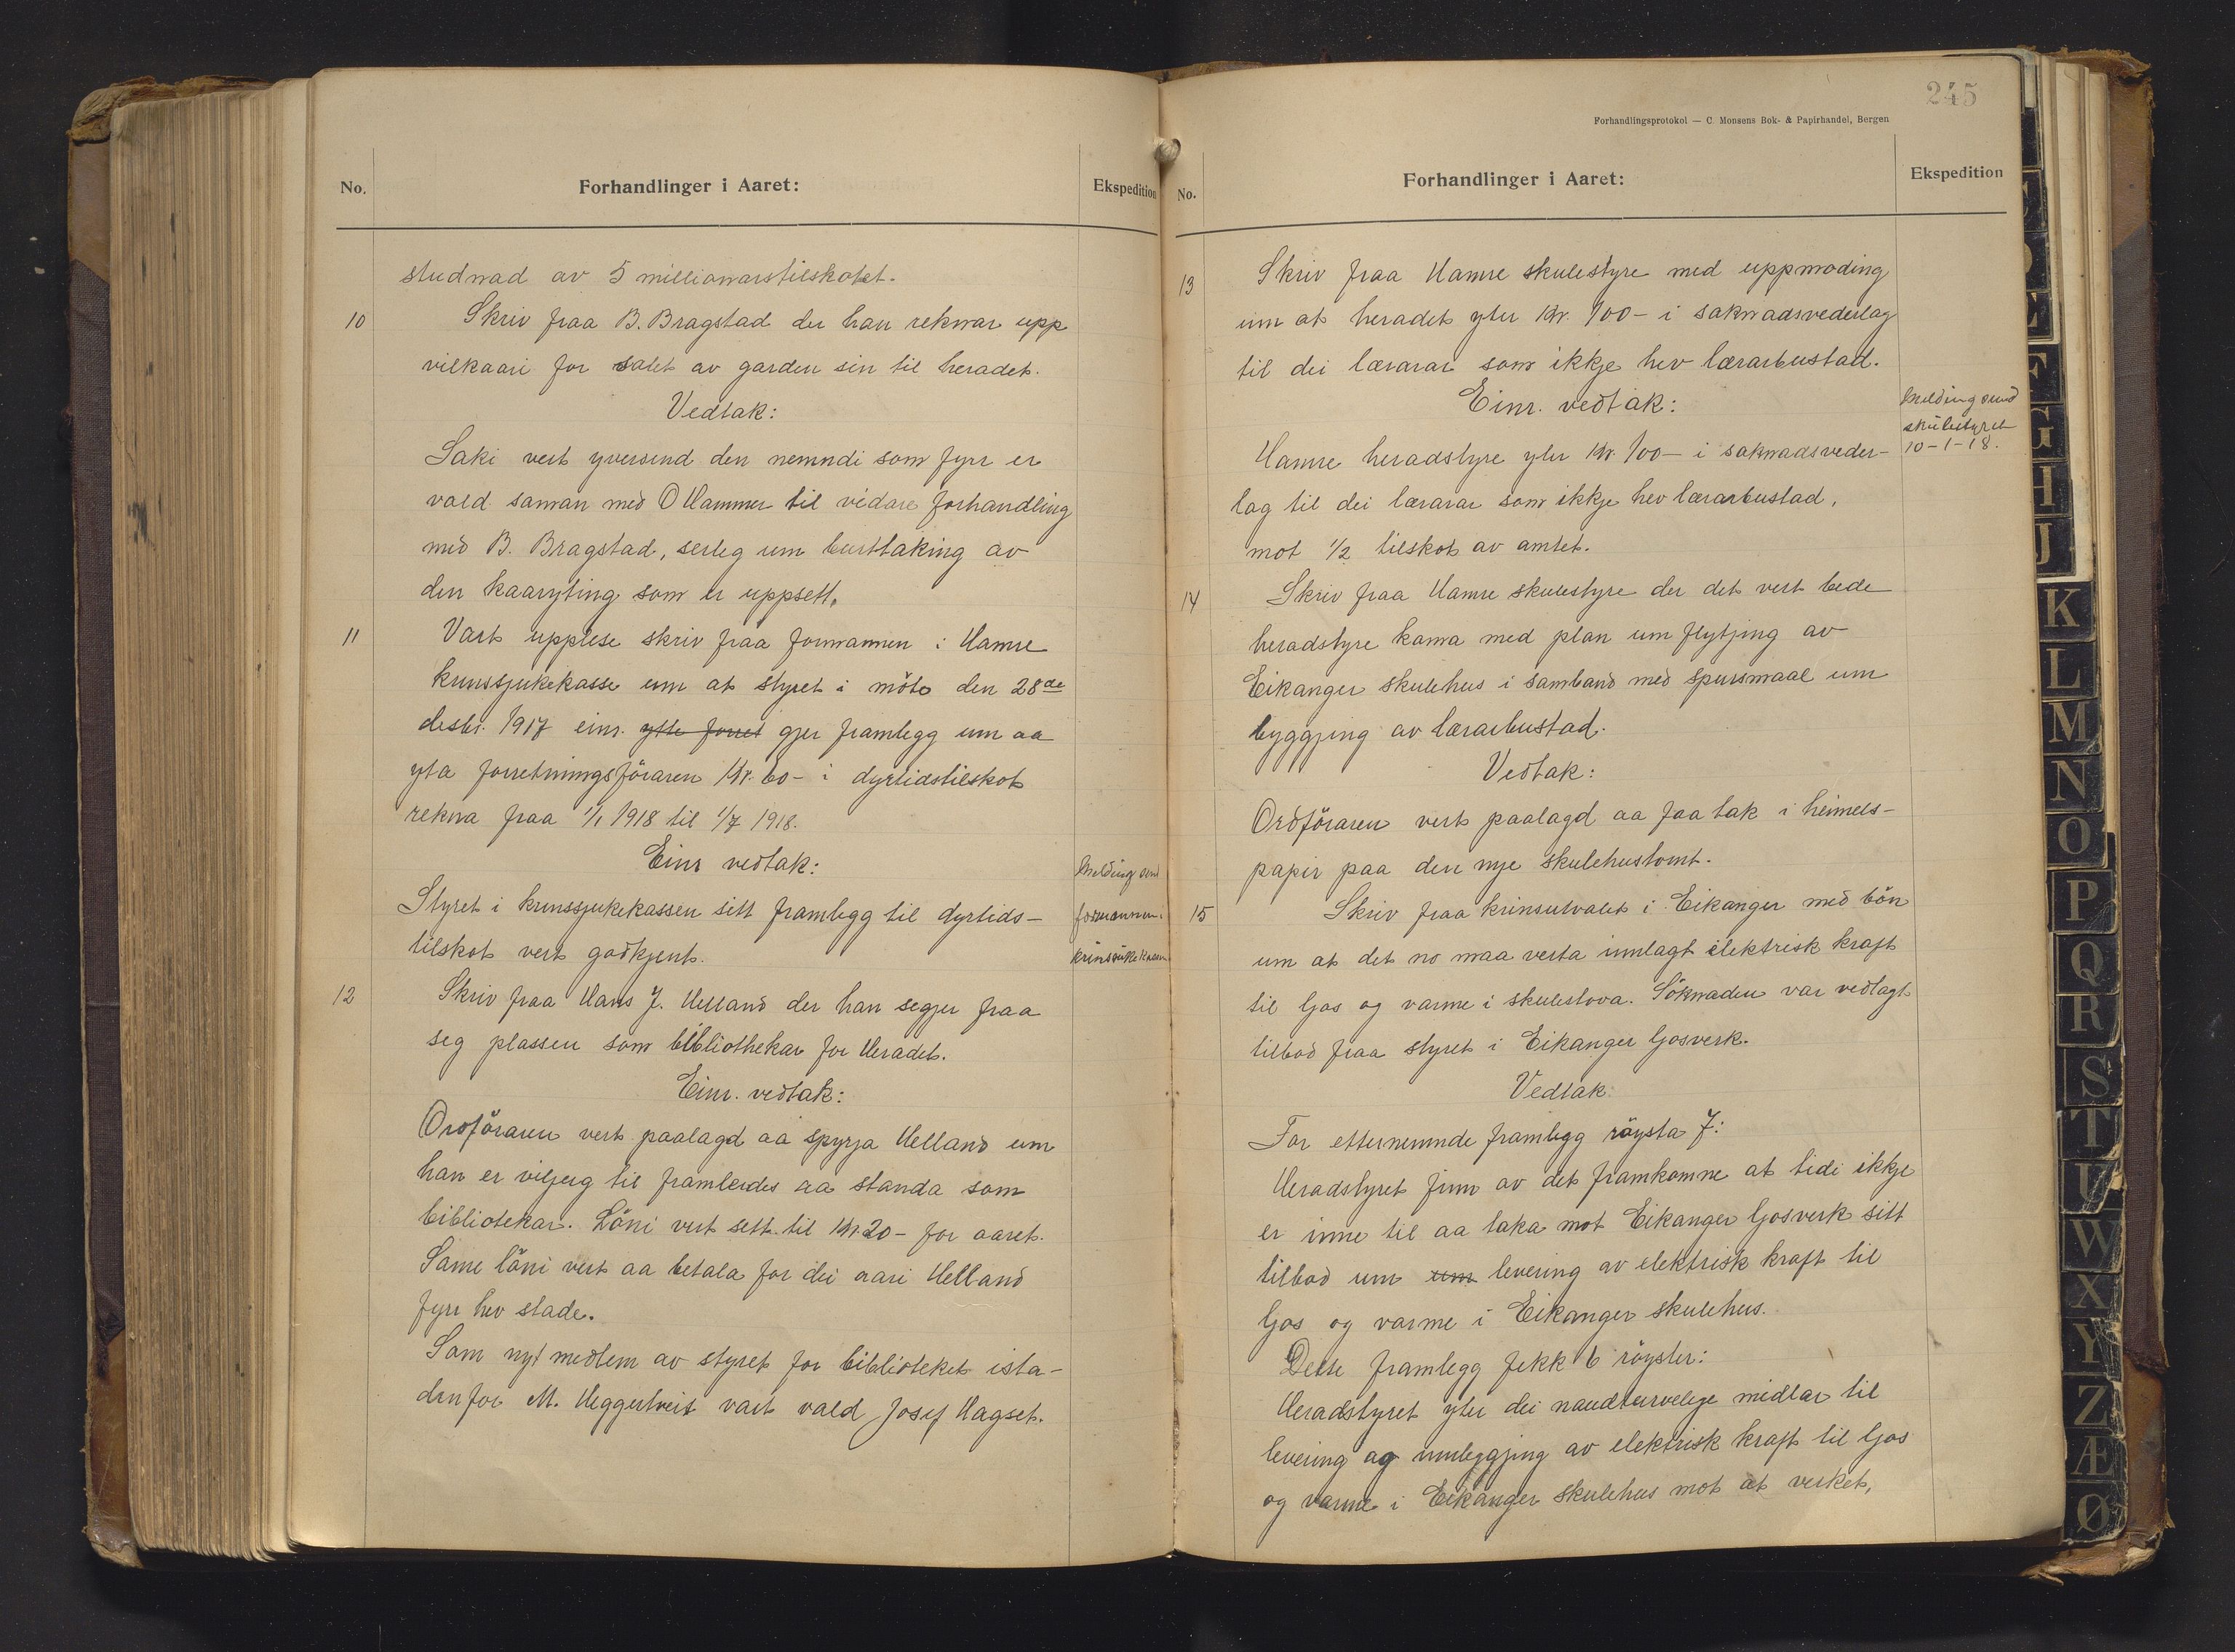 No.
Forhandlinger i Aaret:
Ekspedition
studnad av 5 millionarstilskotet.
10
Skriv fraa B. Bragstad der han reknar upp
vilkaari for salet av garden sin til heradet.
Vedtak:
Saki vert yversend den nemndi som fyrr er
vald saman med O Hammer til vidare forhandling
med B. Bragstad, serleg um burttaking av
den kaaryting som er uppsett.
11
Vart upplese skriv fraa formannen i Hamre
krinssjukekasse um at styret i möte den 28de
desbr. 1917 einr. ytte forret gjer framlegg um aa
yta forretningsföraren Kr. 60- i dyrtidstilskot
rekna fraa 1/1 1918 til 1/7 1918.
Einr vedtak:
Styret i krinssjukekassen sitt framlegg til dyrtids-
tilskot vert godkjent.
Melding send
formannen i
krinssukekassen
12
Skriv fraa Hans J. Helland der han segjer fraa
seg plassen som bibliothekar for Heradet.
Einr. vedtak:
Ordföraren vert paalagd aa spyrja Helland um
han er viljug til framleides aa standa som
bibliotekar. Löni vert sett til Kr 20- for aaret.
Same löni vert aa betala for dei aari Helland
fyrr hev stade.
Som nyt medlem av styret for biblioteket ista-
denfor M. Heggertveit vart vald Josef Hagset.
245
Forhandlingsprotokol — C. Monsens Bok- & Papirhandel, Bergen
No.
Forhandlinger i Aaret:
Ekspedition
13
Skriv fraa Hamre skulestyre med uppmoding
um at heradet yter Kr. 100- i saknadsvederlag
til dei lærarar som ikkje hev lærarbustad.
Einr. vedtak:
Melding send
skulestyret
10-1-18.
Hamre heradstyre yter Kr. 100- i saknadsveder-
lag til dei lærarar som ikkje hev lærarbustad,
mot 1/2 tilskot av amtet.
14
Skriv fraa Hamre skulestyre der det vert bede
heradstyre koma med plan um flytjing av
Eikanger skulehus i samband med spursmaal um
byggjing av lærarbustad.
Vedtak:
Ordföraren vert paalagd aa faa tak i heimels-
papir paa den nye skulehustomt.
15
Skriv fraa krinsutvalet i Eikanger med bön
um at det no maa verta innlagt elektrisk kraft
til ljos og varme i skulestova. Söknaden var vedlagt
tilbod fraa styret i Eikanger ljosverk.
Vedtak:
For etternemnde framlegg röysta 7:
Heradstyret finn av det framkomne at tidi ikkje
er inne til aa taka mot Eikanger ljosverk sitt
tilbod um um levering av elektrisk kraft til
ljos og varme i Eikanger skulehus.
Dette framlegg fekk 6 röyster:
Heradstyret yter dei naudturvelege midlar til
levering og innleggjing av elektrisk kraft til ljos
og varme i Eikanger skulehus mot at verket,
E
F
G
H
I
J
K
L
M
N
O
P
Q
R
S
T
U
W
X
Y
Z
Æ
Ø